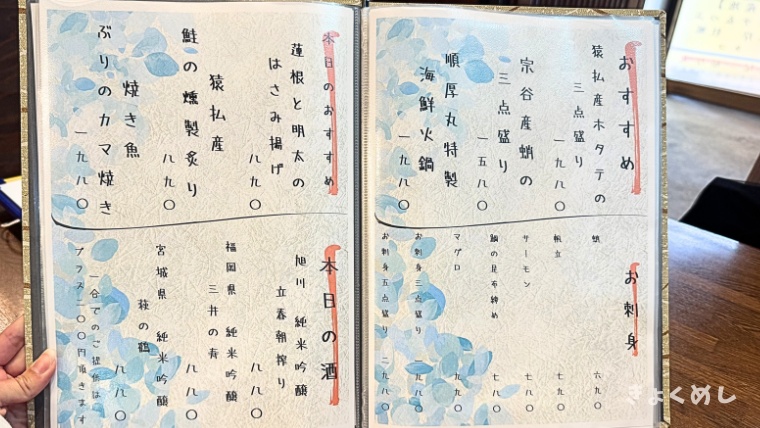 おすすめ
猿払産ホタテの
三点盛り
一九八〇
宗谷産蛸の
三点盛り
一五八〇
順厚丸特製
海鮮火鍋
一九八〇
お刺身
蛸
六九〇
帆立
七八〇
サーモン
七八〇
鯛の昆布締め
七八〇
マグロ
九九〇
お刺身三点盛り
一九八〇
お刺身五点盛り
二九八〇
本日のおすすめ
蓮根と明太の
はさみ揚げ
八九〇
猿払産
鮭の燻製炙り
八九〇
焼き魚
ぶりのカマ焼き
一九八〇
本日の酒
旭川 純米吟醸
立春朝搾り
八八〇
福岡県 純米吟醸
三井の寿
八八〇
宮城県 純米吟醸
萩の鶴
八八〇
一合でのご提供は
プラス二〇〇円頂きます
きょくめし